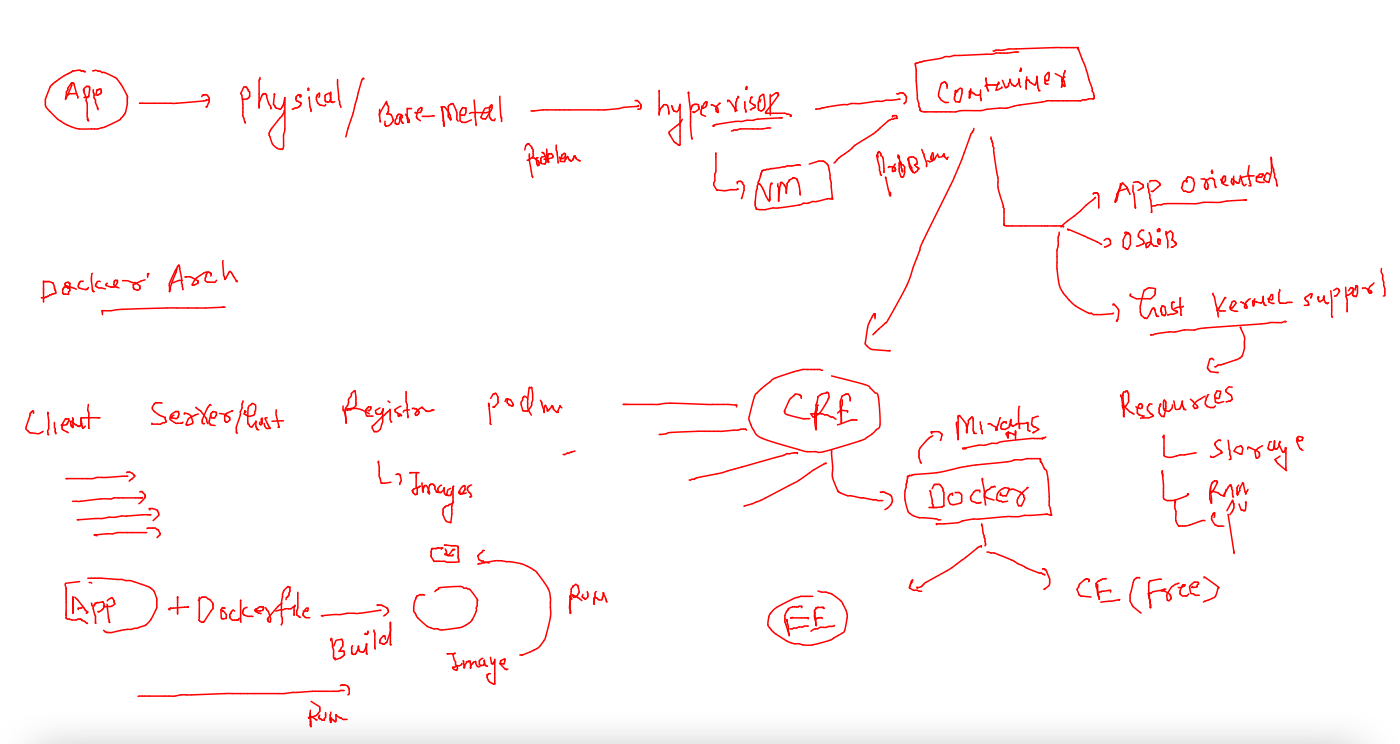 App
Physical/
Bare-Metal
Problem
hypervisor
VM
Problem
Container
App oriented
OSLiB
Host Kernel support
Resources
Storage
RAM
CPU
Docker Arch
Client
Server/Host
Registr
podm
Images
CRE
Mirantis
Docker
EE
CE (Free)
App + Dockerfile
Build
Image
Run
Run